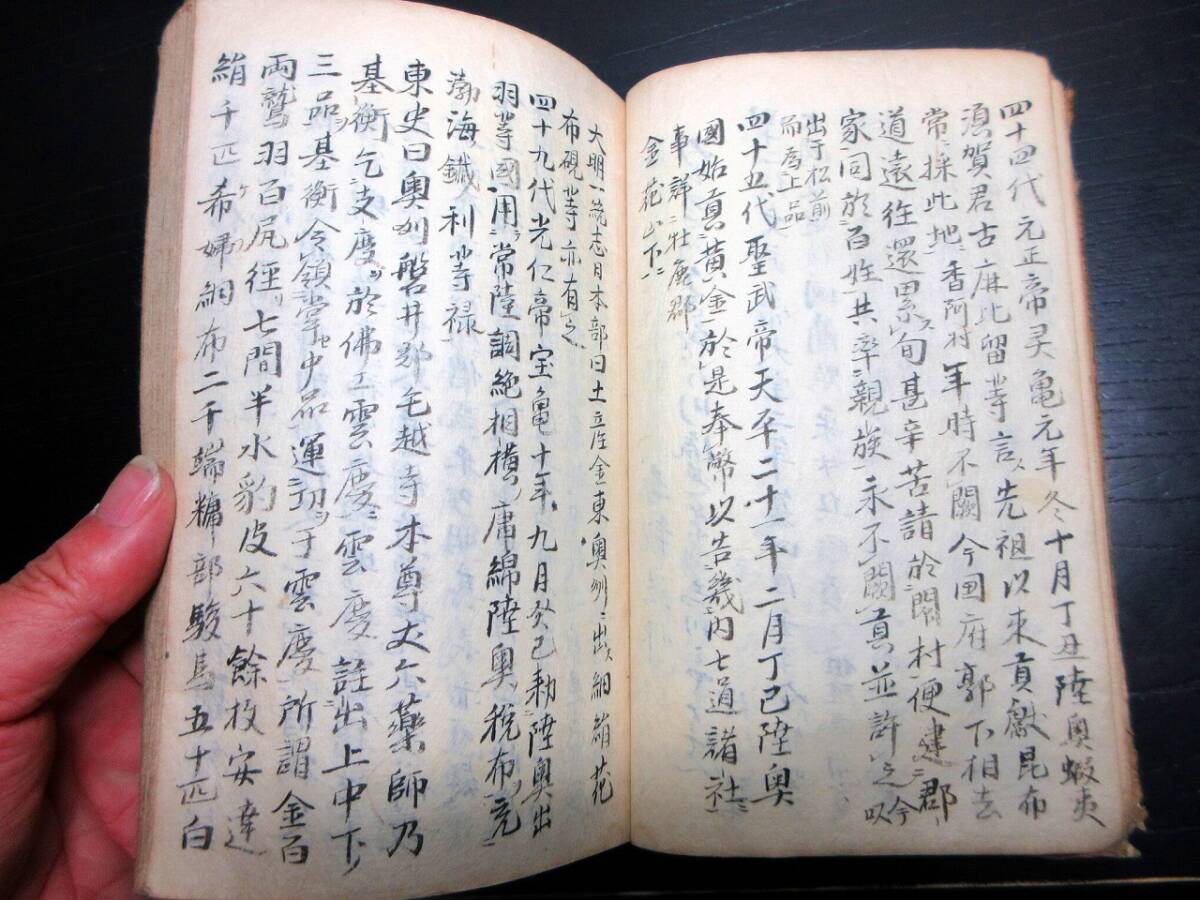 四十四代元正帝灵亀元年冬十月丁丑陸奥蝦夷
湏賀君古麻比留等言ス先祖以来貢献昆布
常ニ採此地ニ香阿村年時不闕今国府郭下相去
道遠往還累ヌ旬甚辛苦請於閇村ニ便建二郡
家同於百姓共率親族永不闕貢並許之今以
出于松前
而為上品
四十五代聖武帝天平二十一年二月丁巳陸奥
國始貢黄金於是奉幣以告畿内七道諸社ニ
事詳ニ牡鹿郡
金花山下ニ
大明一統志日本部曰土産金東奥州ニ出ス細絹花
布硯等亦有之
四十九代光仁帝宝亀十年九月癸巳勅陸奥出
羽等國用常陸調絁相摸庸綿陸奥税布充
渤海鐵利等禄
東史曰奥州磐井郡毛越寺本尊丈六薬師乃
基衡乞支度ヲ於佛工雲慶ニ雲慶註出上中下
三品ヲ基衡令領掌セ中品運功ヲ于雲慶所謂金百
両鷲羽百尻径七間半水豹皮六十餘枚安達
絹千匹希婦細布二千端糠部駿馬五十匹白